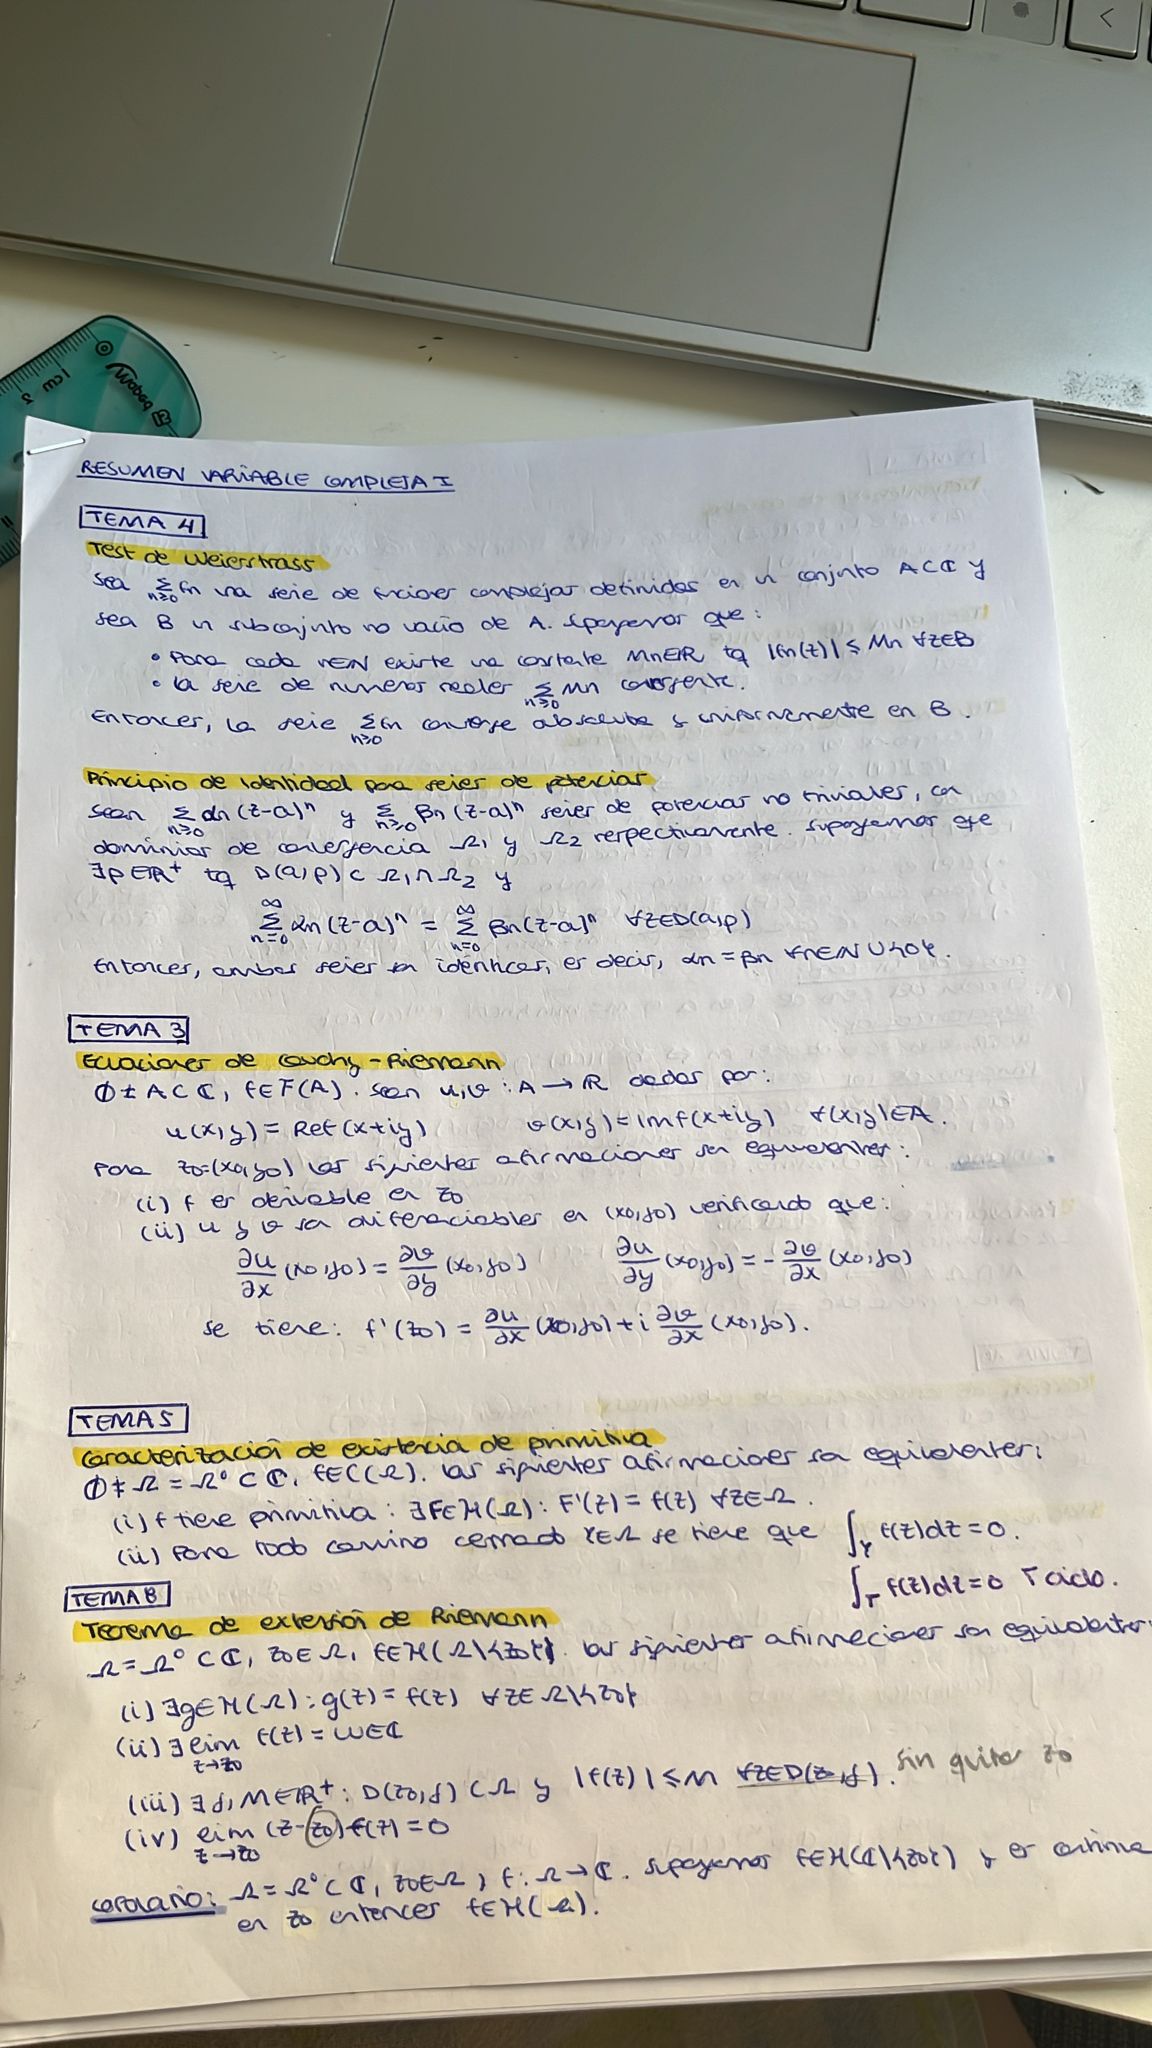 RESUMEN VARIABLE COMPLEJA I
TEMA 4
Test de Weierstrass
Sea Σ_{n≥0} fn una serie de funciones complejas definidas en un conjunto A⊂ℂ y
sea B un subconjunto no vacío de A. Supongamos que:
• Para cada n∈ℕ existe una constante Mn∈ℝ tq |fn(z)| ≤ Mn ∀z∈B
• La serie de números reales Σ_{n≥0} Mn convergente.
Entonces, la serie Σ_{n≥0} fn converge absoluta y uniformemente en B.
Principio de identidad para series de potencias
Sean Σ_{n≥0} αn(z-a)^n y Σ_{n≥0} βn(z-a)^n series de potencias no triviales, con
dominios de convergencia Ω1 y Ω2 respectivamente. Supongamos que
∃ρ∈ℝ+ tq D(a,ρ)⊂Ω1∩Ω2 y
Σ_{n=0}^∞ αn(z-a)^n = Σ_{n=0}^∞ βn(z-a)^n ∀z∈D(a,ρ)
Entonces, ambas series son idénticas, es decir, αn=βn ∀n∈ℕ∪{0}.
TEMA 3
Ecuaciones de Cauchy-Riemann
∅≠A⊂ℂ, f∈F(A). Sean u,v:A→ℝ dadas por:
u(x,y)=Ref(x+iy) v(x,y)=Imf(x+iy) ∀(x,y)∈A.
Para z0=(x0,y0) las siguientes afirmaciones son equivalentes:
(i) f es derivable en z0
(ii) u y v son diferenciables en (x0,y0) verificando que:
∂u/∂x (x0,y0) = ∂v/∂y (x0,y0) ∂u/∂y (x0,y0) = -∂v/∂x (x0,y0)
se tiene: f'(z0) = ∂u/∂x (x0,y0) + i ∂v/∂x (x0,y0).
TEMA 5
Caracterización de existencia de primitiva
∅≠Ω=Ω°⊂ℂ, f∈C(Ω). Las siguientes afirmaciones son equivalentes:
(i) f tiene primitiva: ∃F∈H(Ω): F'(z)=f(z) ∀z∈Ω.
(ii) Para todo camino cerrado γ∈Ω se tiene que ∫_γ f(z)dz=0.
∫_Γ f(z)dz=0 Γ ciclo.
TEMA 8
Teorema de extensión de Riemann
Ω=Ω°⊂ℂ, z0∈Ω, f∈H(Ω\{z0}). Las siguientes afirmaciones son equivalentes:
(i) ∃g∈H(Ω): g(z)=f(z) ∀z∈Ω\{z0}
(ii) ∃ lim_{z→z0} f(z)=w∈ℂ
(iii) ∃δ,M∈ℝ+: D(z0,δ)⊂Ω y |f(z)|≤M ∀z∈D(z0,δ). sin quitar z0
(iv) lim_{z→z0} (z-z0)f(z)=0
Corolario: Ω=Ω°⊂ℂ, z0∈Ω, f:Ω→ℂ. Supongamos f∈H(ℂ\{z0}) y es continua
en z0 entonces f∈H(Ω).